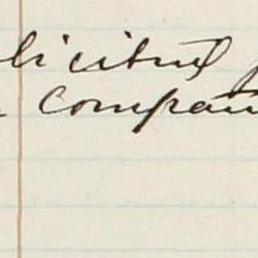 licitud
Compan